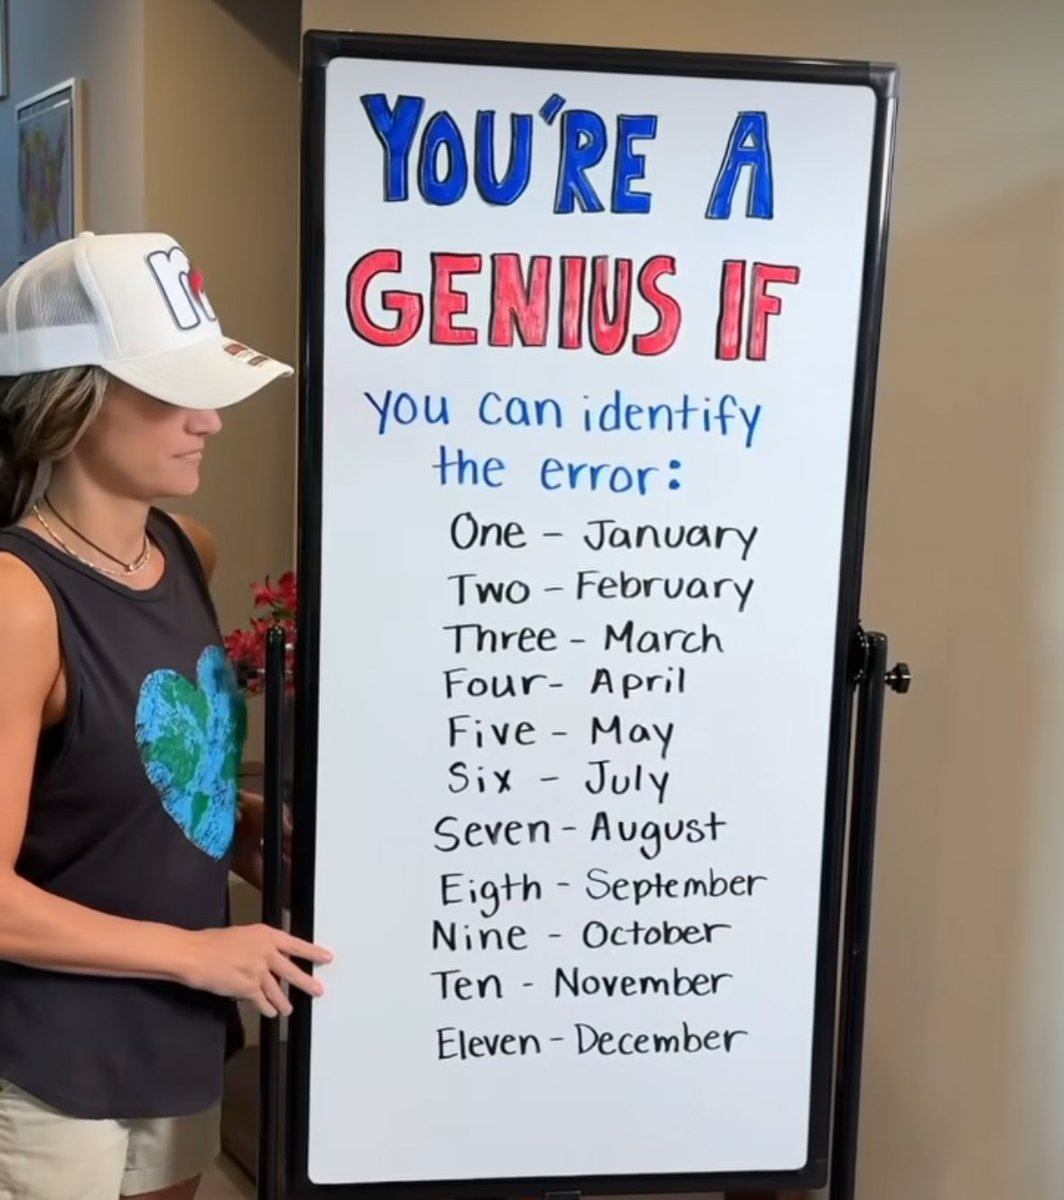 YOU'RE A
GENIUS IF
you can identify
the error:
One - January
Two - February
Three - March
Four - April
Five - May
Six - July
Seven - August
Eigth - September
Nine - October
Ten - November
Eleven - December